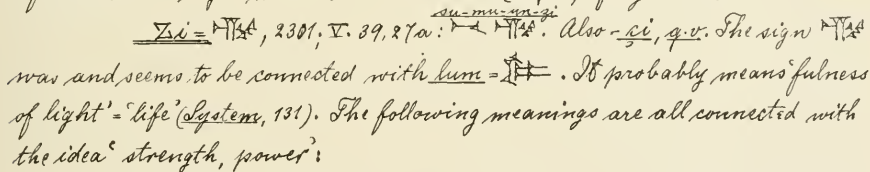 su-mu-un-zi
Zi = 𒍣, 2301; V. 39, 27a: 𒁁 𒍣. Also -çi, q.v. The sign 𒍣
was and seems to be connected with lum = 𒈝. It probably means 'fulness
of light' = 'life' (System, 131). The following meanings are all connected with
the idea 'strength, power':